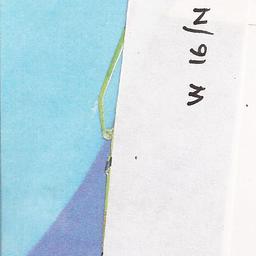 W 16/N